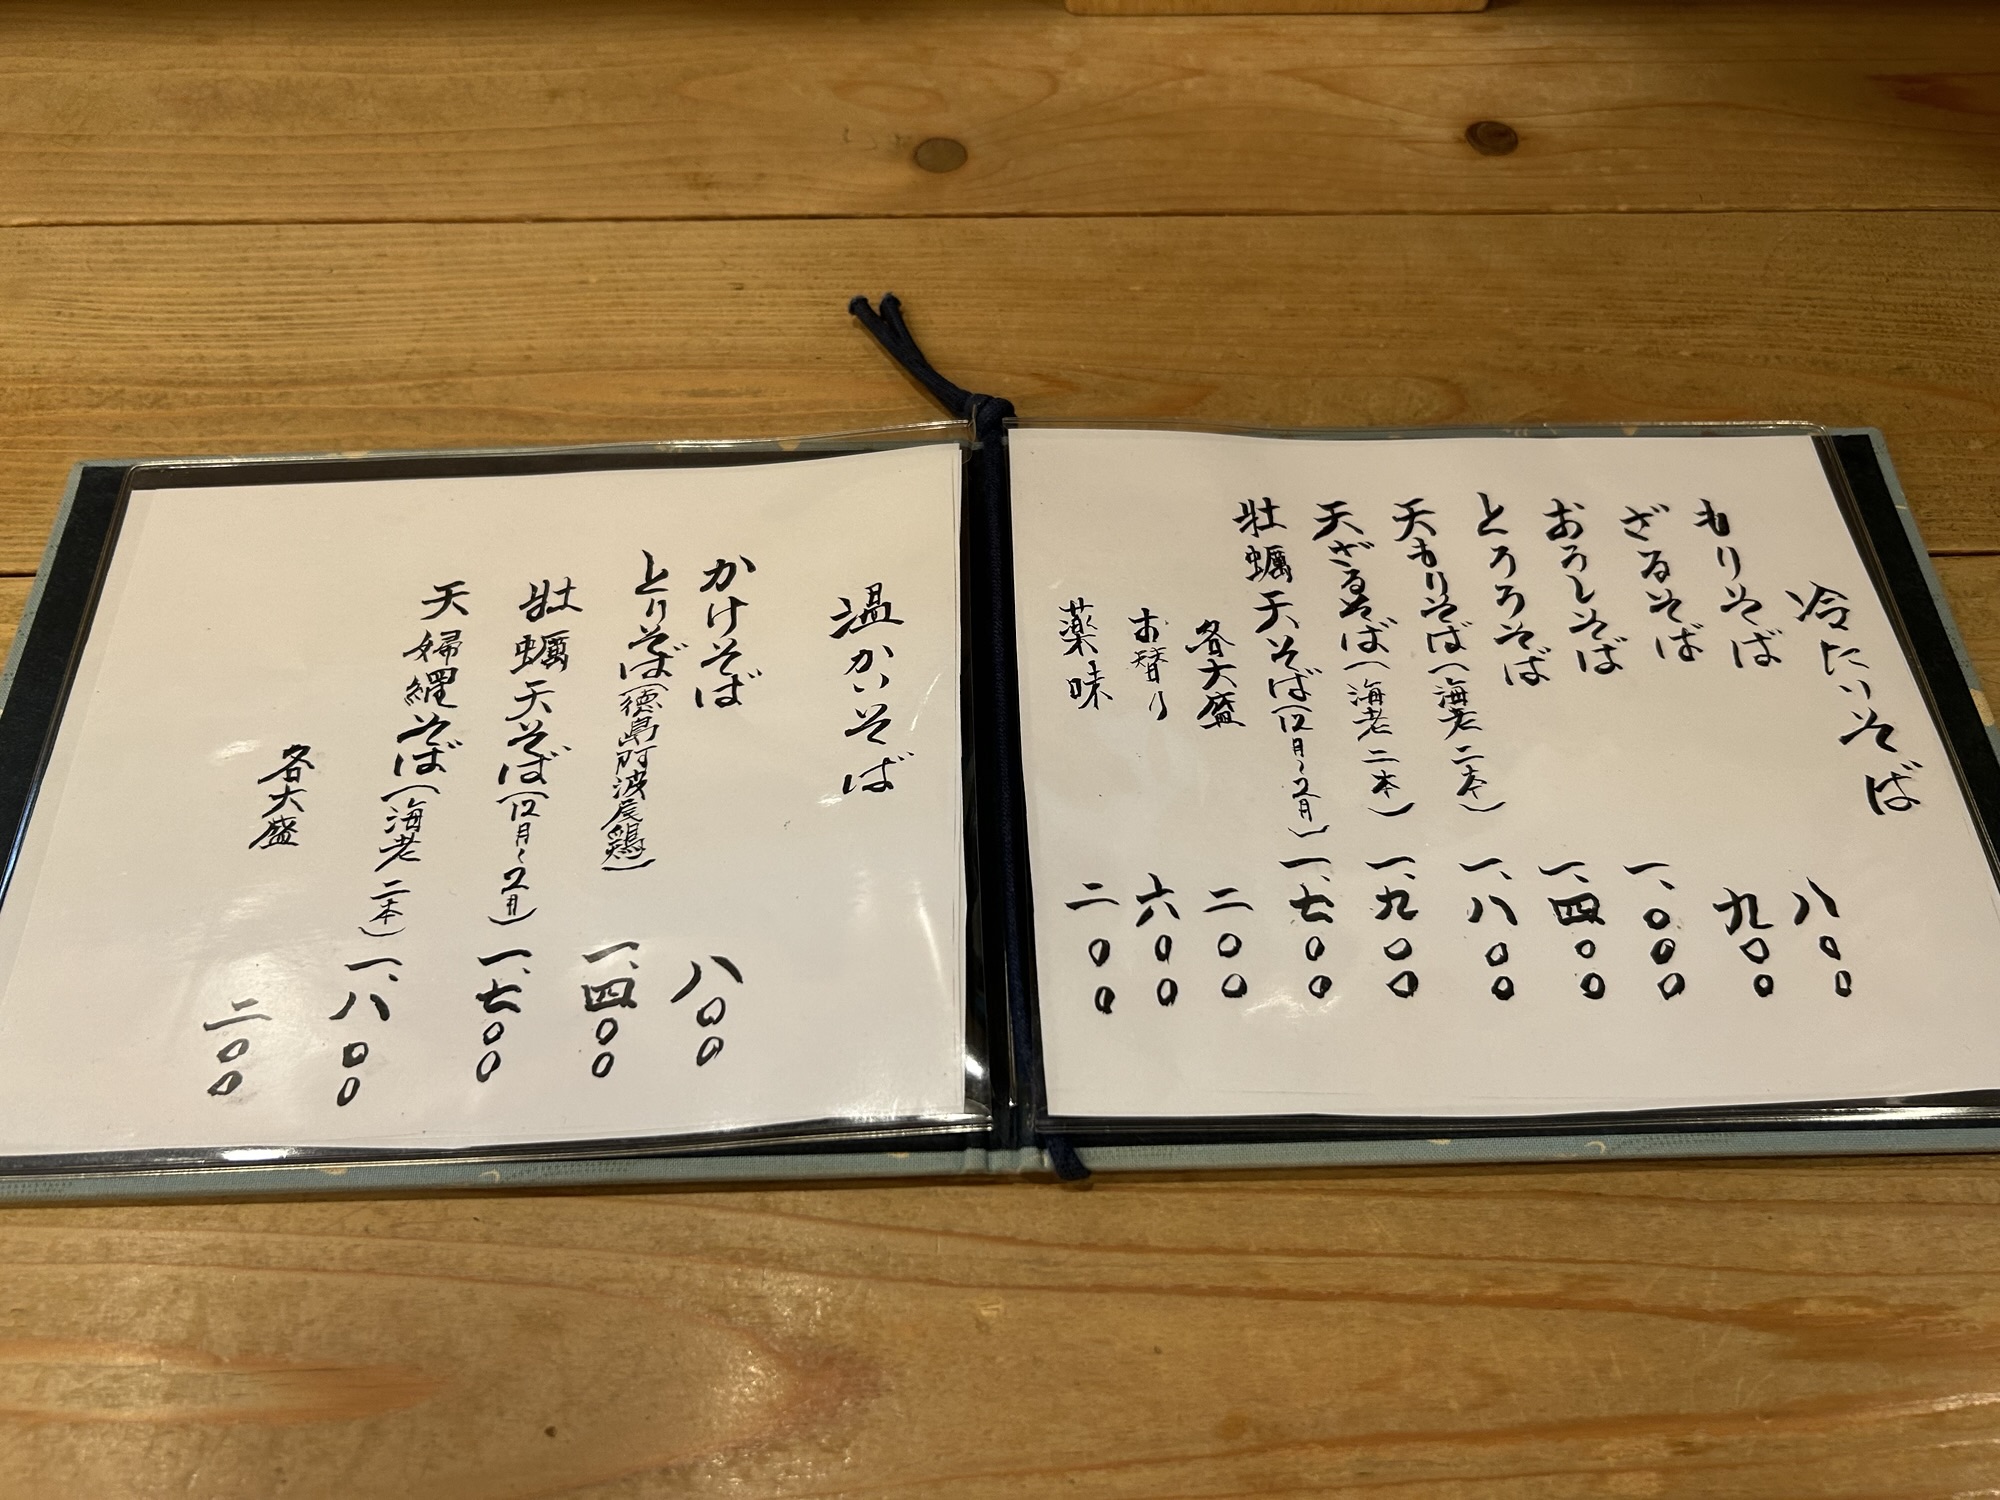 冷たいそば
もりそば 八〇〇
ざるそば 九〇〇
おろしそば 一、〇〇〇
とろろそば 一、四〇〇
天もりそば(海老二本) 一、八〇〇
天ざるそば(海老二本) 一、九〇〇
牡蠣天そば(12月〜2月) 一、七〇〇
各大盛 二〇〇
お替り 六〇〇
薬味 二〇〇
温かいそば
かけそば 八〇〇
とりそば(徳島阿波尾鶏) 一、四〇〇
牡蠣天そば(12月〜2月) 一、七〇〇
天婦羅そば(海老二本) 一、八〇〇
各大盛 二〇〇